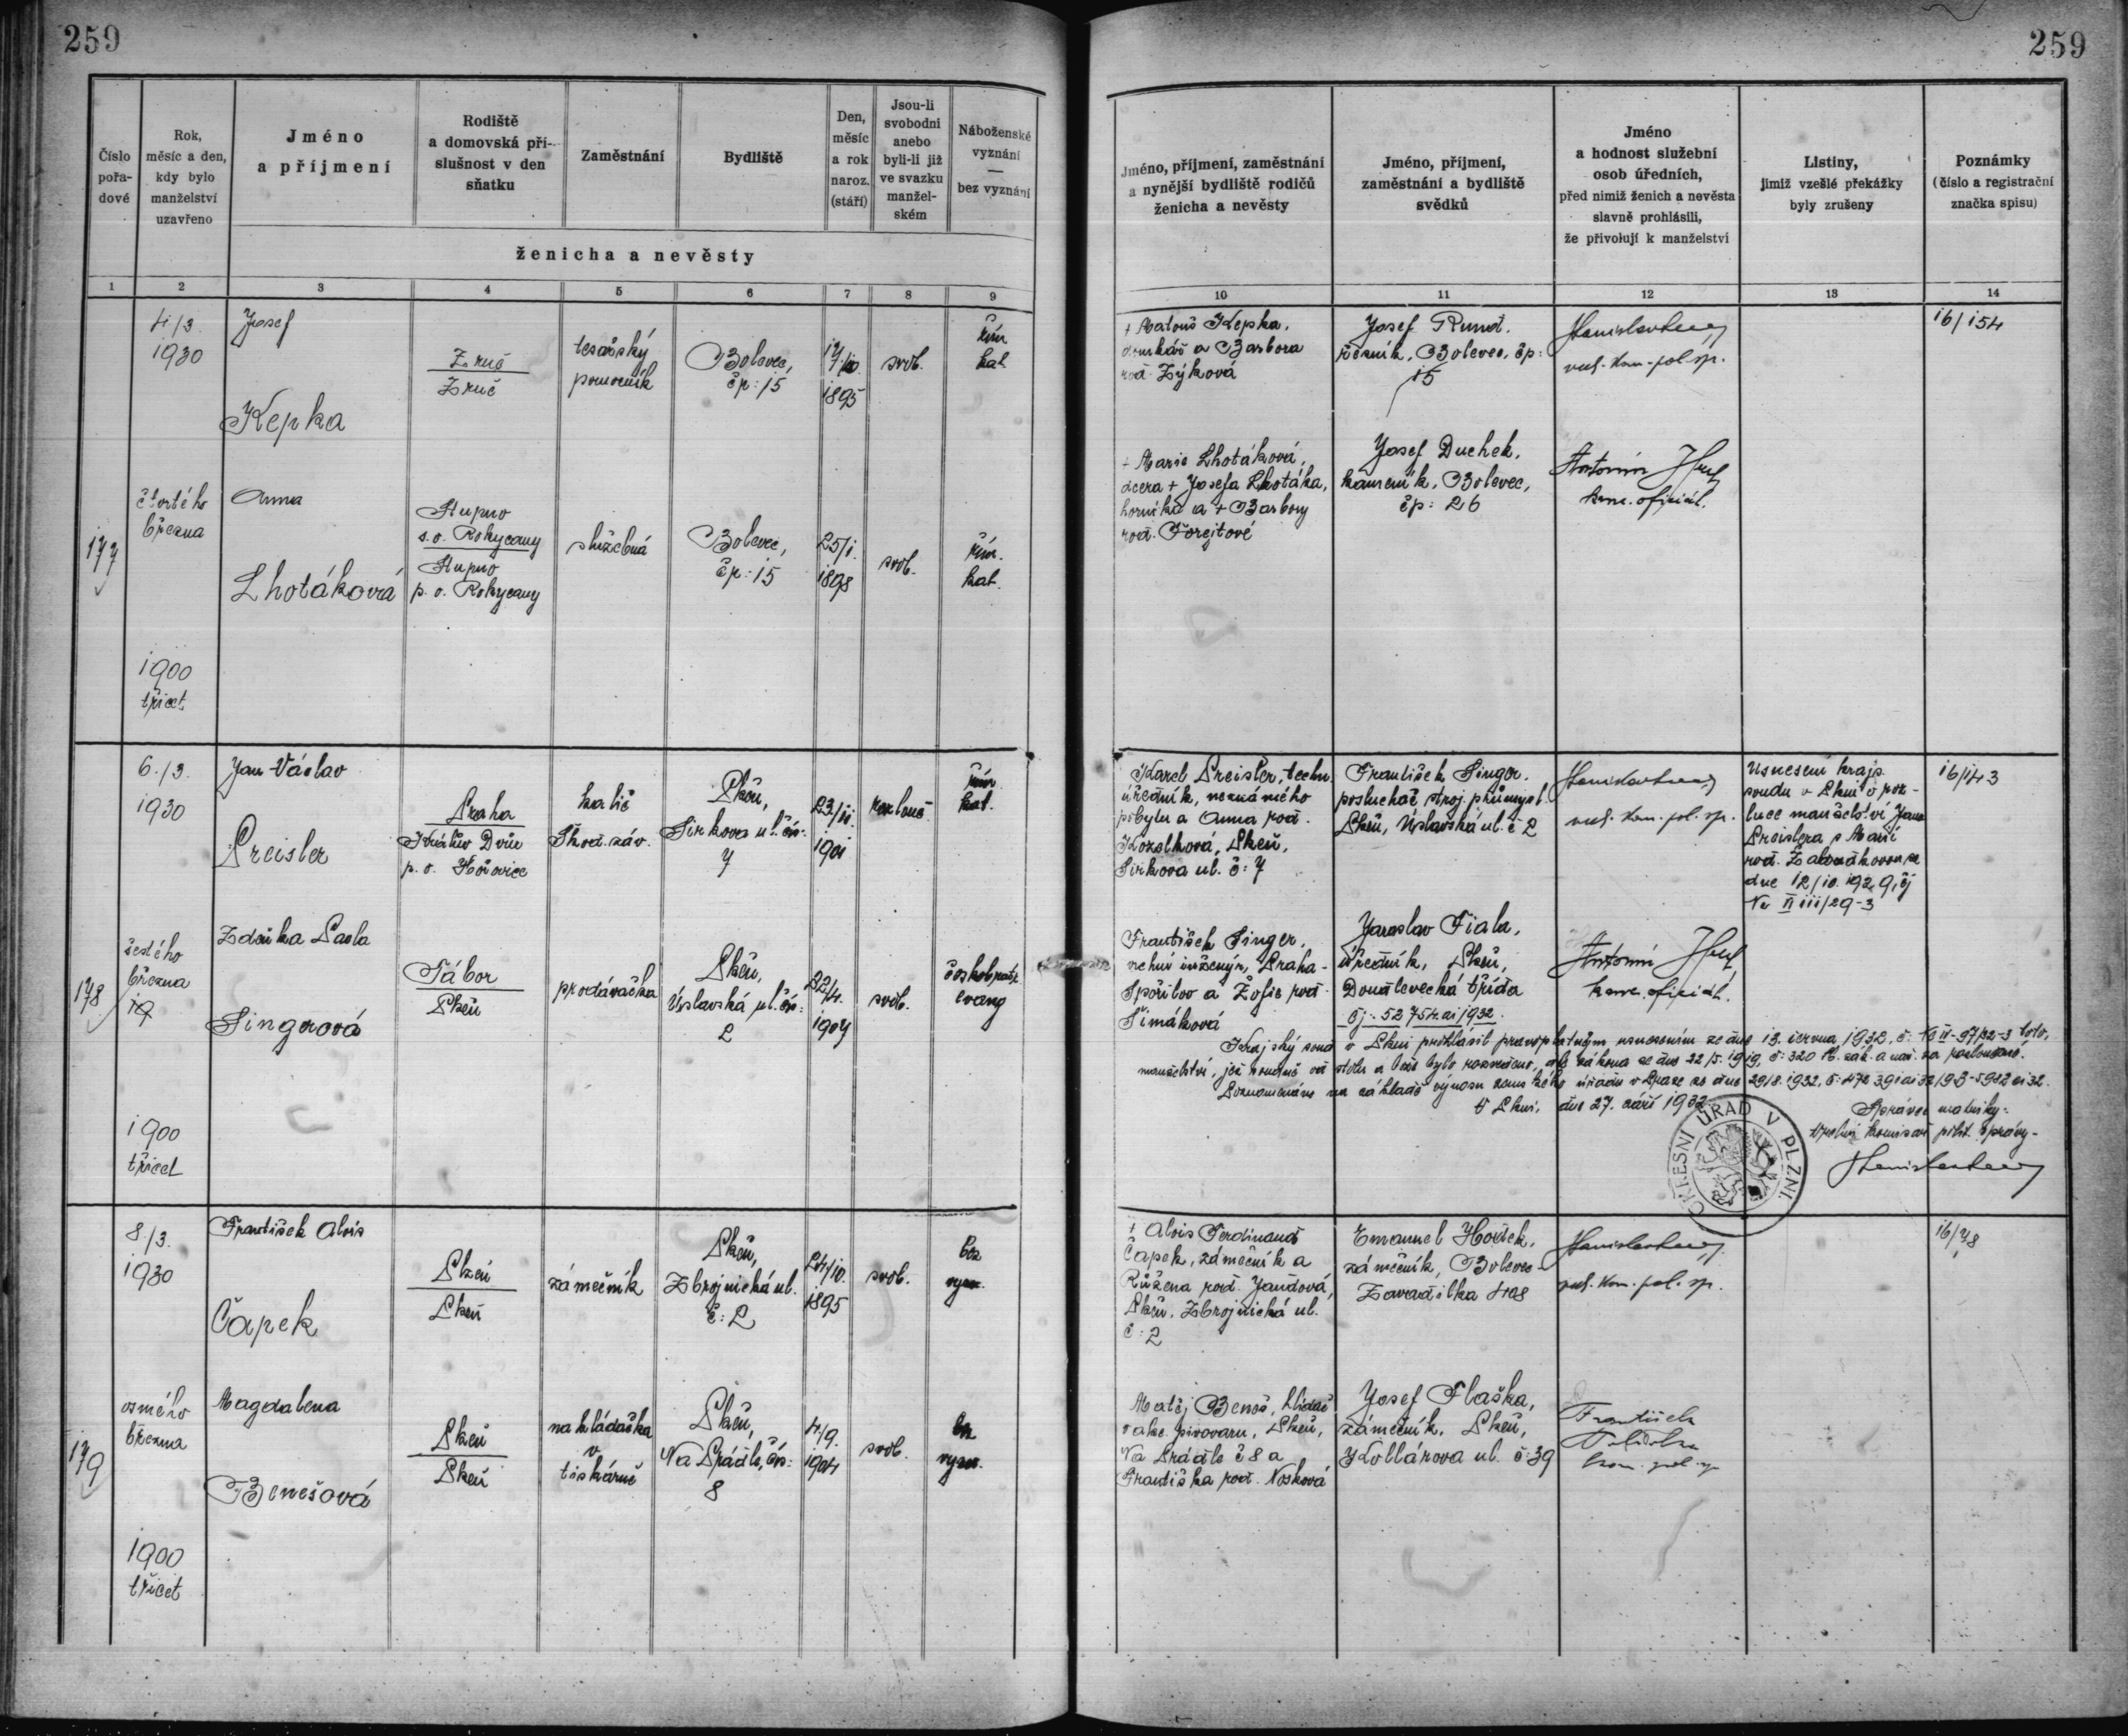 259
259
Číslo
pořa-
dové
Rok,
měsíc a den,
kdy bylo
manželství
uzavřeno
Jméno
a příjmení
Rodiště
a domovská pří-
slušnost v den
sňatku
Zaměstnání
Bydliště
Den,
měsíc
a rok
naroz.
(stáří)
Jsou-li
svobodni
anebo
byli-li již
ve svazku
manžel-
ském
Náboženské
vyznání
—
bez vyznání
ženicha a nevěsty
Jméno, příjmení, zaměstnání
a nynější bydliště rodičů
ženicha a nevěsty
Jméno, příjmení,
zaměstnání a bydliště
svědků
Jméno
a hodnost služební
osob úředních,
před nimiž ženich a nevěsta
slavně prohlásili,
že přivolují k manželství
Listiny,
jimiž vzešlé překážky
byly zrušeny
Poznámky
(číslo a registrační
značka spisu)
1 2 3 4 5 6 7 8 9
10 11 12 13 14
177
4/3.
1930
čtvrtého
března
1900
třicet
Josef
Kepka
Zruč
Zruč
tesařský
pomocník
Bolevec,
čp: 15
17/10.
1895
svob.
řím
kat
+ Matouš Kepka,
domkář a Barbora
rod. Zýková
Josef Rund.
řezník, Bolevec, čp:
15
kom. pol. sp.
16/154
Anna
Lhotáková
Stupno
s. o. Rokycany
Stupno
p. o. Rokycany
služebná
Bolevec,
čp: 15
25/1.
1898
svob.
řím.
kat.
+ Marie Lhotáková,
dcera + Josefa Lhotáka,
horníka a + Barbory
rod. Forejtové
Josef Duchek,
kameník, Bolevec,
čp: 26
Antonín
kanc. oficiál.
178
6./3.
1930
šestého
března
19
1900
třicet
Jan Václav
Preisler
Praha
Králův Dvůr
p. o. Hořovice
kalič
Škod. záv.
Plzeň,
Sirkova ul. čís:
7
23/11.
1901
rozlouč.
řím
kat.
Karel Preisler, techn.
úředník, neznámého
pobytu a Anna rod.
Kozelková, Plzeň,
Sirkova ul. č: 7
František Singer.
posluchač stroj. průmysl.
Plzeň, Úslavská ul. č 2
kom. pol. sp.
Usnesení krajs.
soudu v Plzni o roz-
luce manželství Jana
Preislera s Marií
rod. Žaludákovou ze
dne 12/10. 1929, čj
Nc II 111/29-3
16/143
Zdeňka Pavla
Singerová
Tábor
Plzeň
prodavačka
Plzeň,
Úslavská ul. čís:
2
22/4.
1907
svob.
českobratr.
evang
František Singer,
vrchní inženýr, Praha-
Spořilov a Žofie rod.
Šimáková
Jaroslav Fiala,
úředník, Plzeň,
Doudlevecká třída
Antonín
kanc. oficiál.
čj: 52754 ai 1932.
Krajský soud v Plzni prohlásil pravoplatným usnesením ze dne 13. června 1932, č: Nc II-97/32-3 toto
manželství, jež soudně od stolu a lože bylo rozvedeno, dle zákona ze dne 22/5. 1919, č: 320 Sb. zák. a nař. za rozloučené.
Poznamenáno na základě výnosu zemského úřadu v Praze ze dne 29/8. 1932,
V Plzni, dne 27. září 1932
Správce matriky:
Vrchní komisař polit. správy-
OKRESNÍ ÚŘAD V PLZNI
179
8/3.
1930
osmého
března
1900
třicet
František Alois
Čapek
Plzeň
Plzeň
zámečník
Plzeň,
Zbrojnická ul.
č: 2
24/10.
1895
svob.
bez
vyzn.
+ Alois Ferdinand
Čapek, zámečník a
Růžena rod. Jandová,
Plzeň, Zbrojnická ul.
č: 2
Emanuel Hošek,
zámečník, Bolevec-
Zavadilka 408
kom. pol. sp.
16/78
Magdalena
Benešová
Plzeň
Plzeň
nakládačka
v
tiskárně
Plzeň,
Na Prádle, čís:
8
4/9.
1904
svob.
bez
vyzn.
Matěj Beneš, hlídač
v akc. pivovaru, Plzeň,
Na Prádle č 8 a
Františka rod. Nosková
Josef Flaška,
zámečník, Plzeň,
Kollárova ul. č: 39
František